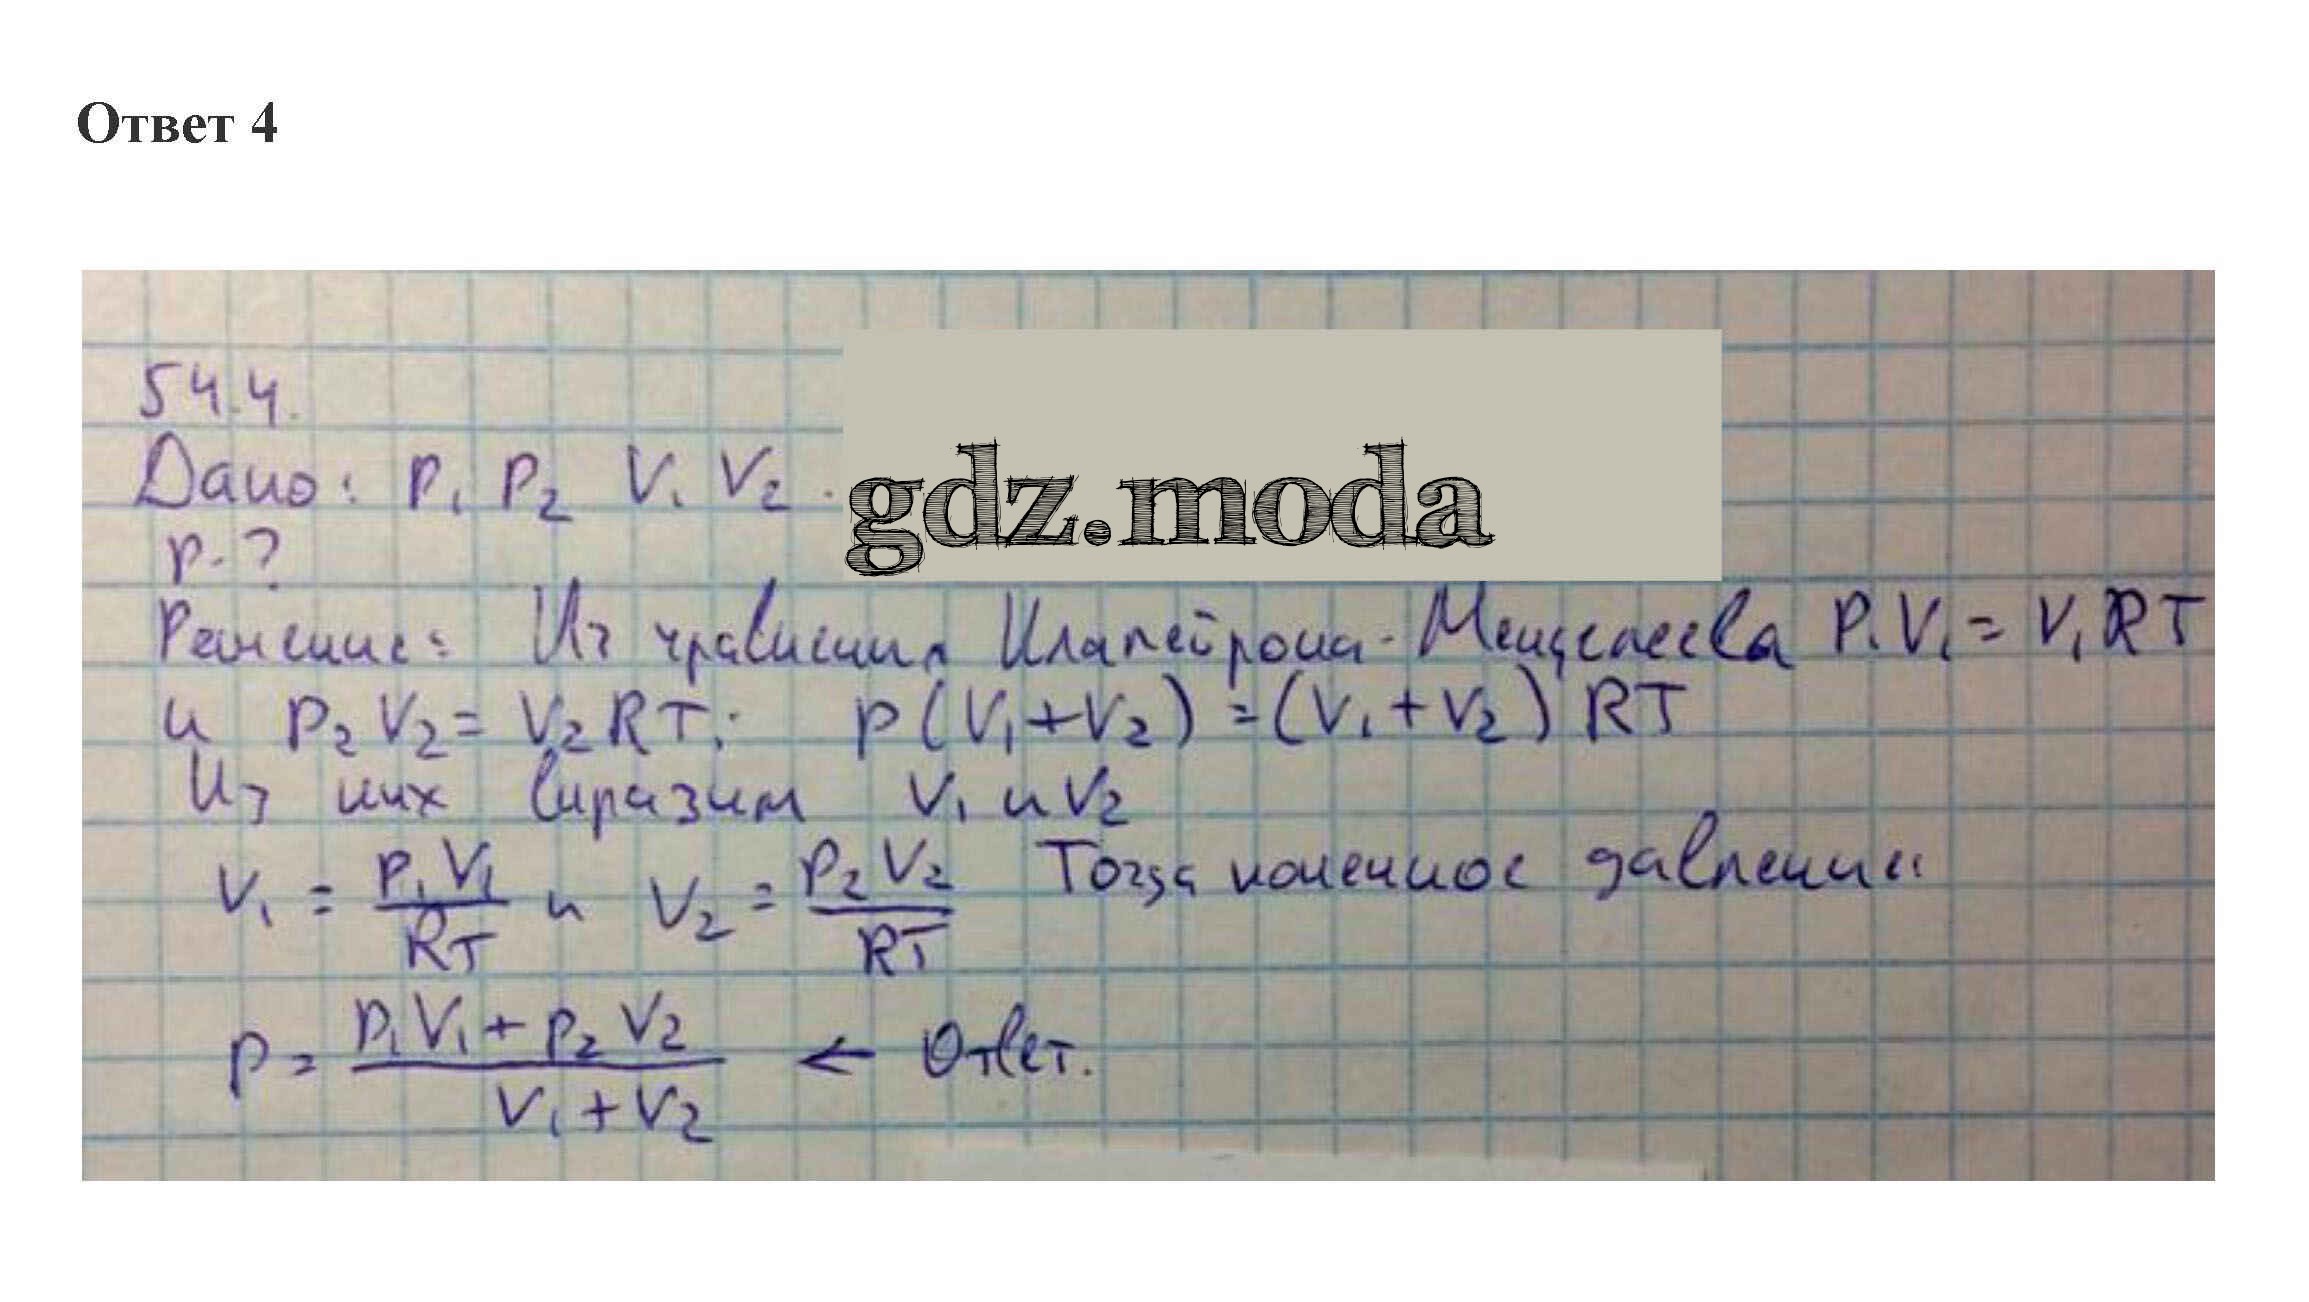 Ответ 4
54.4.
Дано: p₁ p₂ V₁ V₂.
gdz.moda
p-?
Решение: Из уравнения Клапейрона-Менделеева P₁V₁ = ν₁RT
и p₂V₂ = ν₂RT; p(V₁+V₂) = (ν₁+ν₂)RT
Из них выразим ν₁ и ν₂
ν₁ = p₁V₁/RT и ν₂ = p₂V₂/RT Тогда конечное давление:
p = (p₁V₁ + p₂V₂)/(V₁ + V₂) ← Ответ.